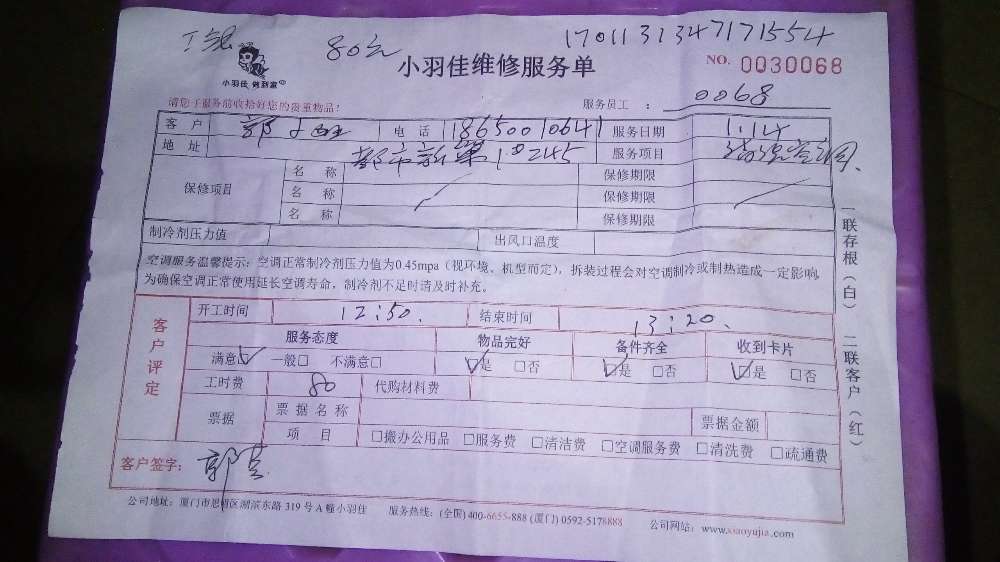 80元
17011313471 71554
小羽佳 做到家
小羽佳维修服务单
NO. 0030068
请您于服务前收拾好您的贵重物品!
服务员工 : 0068
客 户 郭 电 话 18650010641 服务日期 1.14
地 址 都市新巢 服务项目
保修项目 名 称 保修期限
名 称 保修期限
名 称 保修期限
制冷剂压力值 出风口温度
空调服务温馨提示:空调正常制冷剂压力值为0.45mpa(视环境、机型而定),拆装过程会对空调制冷或制热造成一定影响,
为确保空调正常使用延长空调寿命,制冷剂不足时请及时补充。
客户评定
开工时间 12:50. 结束时间 13:20.
服务态度 物品完好 备件齐全 收到卡片
满意☑ 一般□ 不满意□ ☑是 □否 ☑是 □否 ☑是 □否
工时费 80 代购材料费
票据 票 据 名 称 票据金额
项 目 □搬办公用品 □服务费 □清洁费 □空调服务费 □清洗费 □疏通费
客户签字: 郭
公司地址:厦门市思明区湖滨东路 319 号 A 幢小羽佳 服务热线:(全国) 400-6655-888 (厦门) 0592-5178888 公司网站:www.xiaoyujia.com
一联存根(白) 二联客户(红)